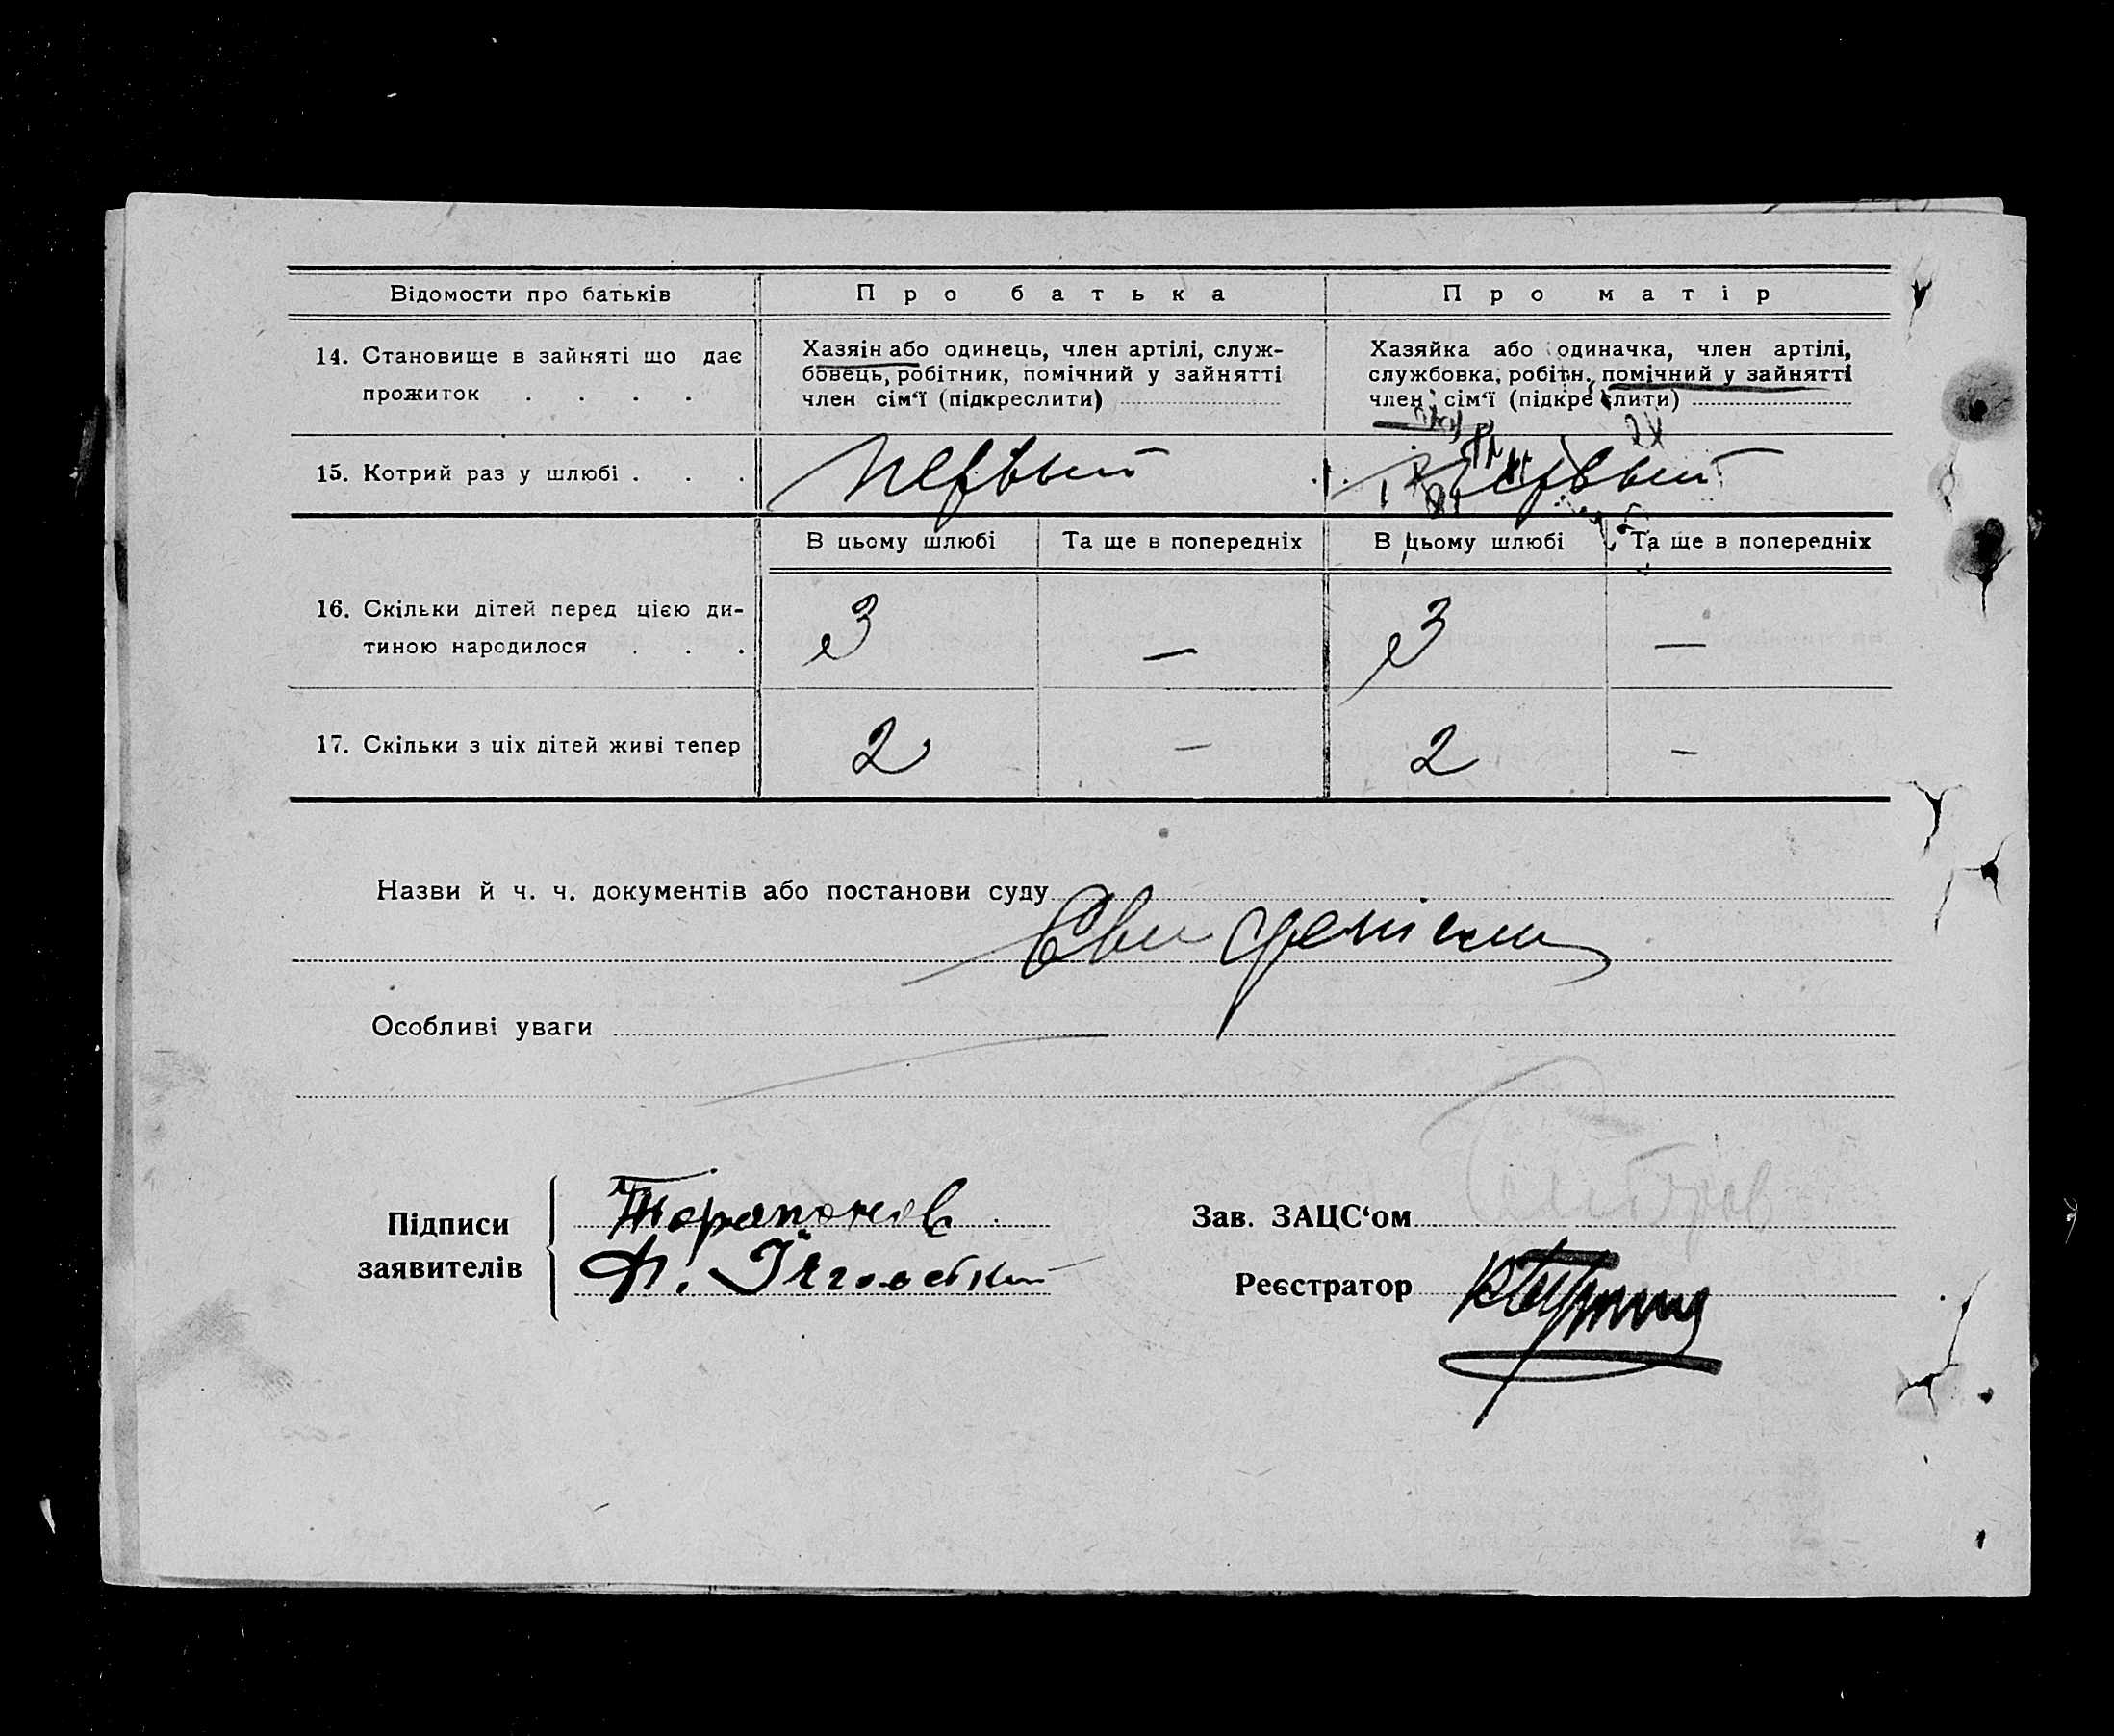 Відомости про батьків
Про батька
Про матір
14. Становище в зайняті що дає
прожиток . . . .
Хазяїн або одинець, член артілі, служ-
бовець, робітник, помічний у зайнятті
член сім‘ї (підкреслити)
Хазяйка або одиначка, член артілі,
службовка, робітн., помічний у зайнятті
член сім‘ї (підкреслити)
15. Котрий раз у шлюбі . . .
первый
первый
В цьому шлюбі
Та ще в попередніх
В цьому шлюбі
Та ще в попередніх
16. Скільки дітей перед цією ди-
тиною народилося . . .
3
—
3
—
17. Скільки з ціх дітей живі тепер
2
—
2
—
Назви й ч. ч. документів або постанови суду
Особливі уваги
Підписи
заявителів
Зав. ЗАЦС‘ом
Реєстратор